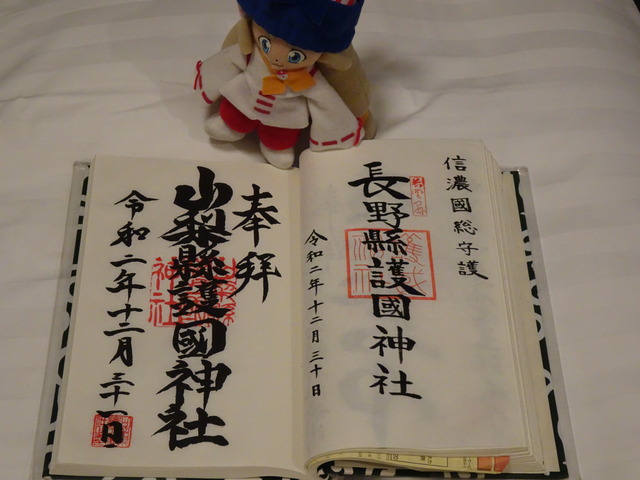 信濃國総守護
長野縣護國神社
令和二年十二月三十日
奉拜
山梨縣護國神社
令和二年十二月三十一日